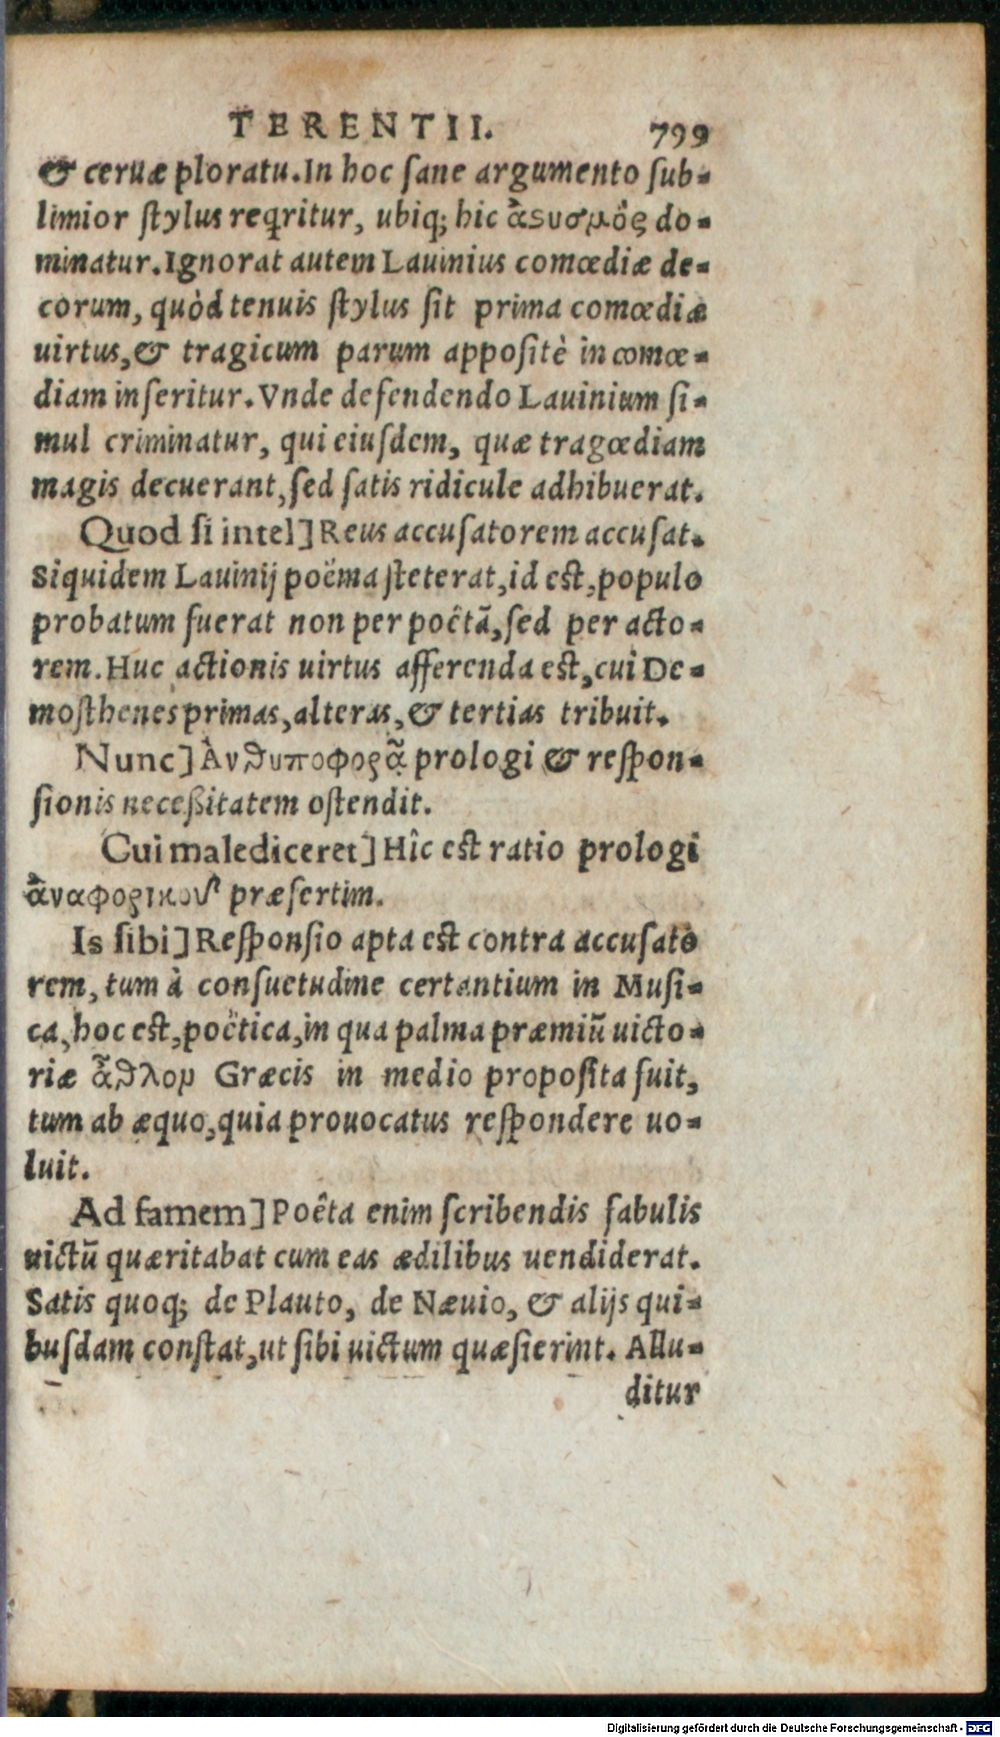 TERENTII. 799
& ceruæ ploratu. In hoc sane argumento sub-
limior stylus reqritur, ubiq; hic do-
minatur. Ignorat autem Lauinius comœdiæ de-
corum, quòd tenuis stylus sit prima comœdiæ
uirtus, & tragicum parum appositè in comœ-
diam inseritur. Vnde defendendo Lauinium si-
mul criminatur, qui eiusdem, quæ tragœdiam
magis decuerant, sed satis ridicule adhibuerat.
Quod si intel] Reus accusatorem accusat.
Siquidem Lauinij poëma steterat, id est, populo
probatum fuerat non per poëtã, sed per acto-
rem. Huc actionis uirtus afferenda est, cui De-
mosthenes primas, alteras, & tertias tribuit.
Nunc] Ἀνθυποφορᾷ prologi & respon-
sionis neceßitatem ostendit.
Cui malediceret] Hîc est ratio prologi
ἀναφορικοῦ præsertim.
Is sibi] Responsio apta est contra accusato
rem, tum à consuetudine certantium in Musi-
ca, hoc est, poëtica, in qua palma præmiũ uicto-
riæ ἆθλον Græcis in medio proposita fuit,
tum ab æquo, quia prouocatus respondere uo-
luit.
Ad famem] Poëta enim scribendis fabulis
uictũ quæritabat cum eas ædilibus uendiderat.
Satis quoq; de Plauto, de Næuio, & alijs qui-
busdam constat, ut sibi uictum quæsierint. Allu-
ditur
Digitalisierung gefördert durch die Deutsche Forschungsgemeinschaft - DFG